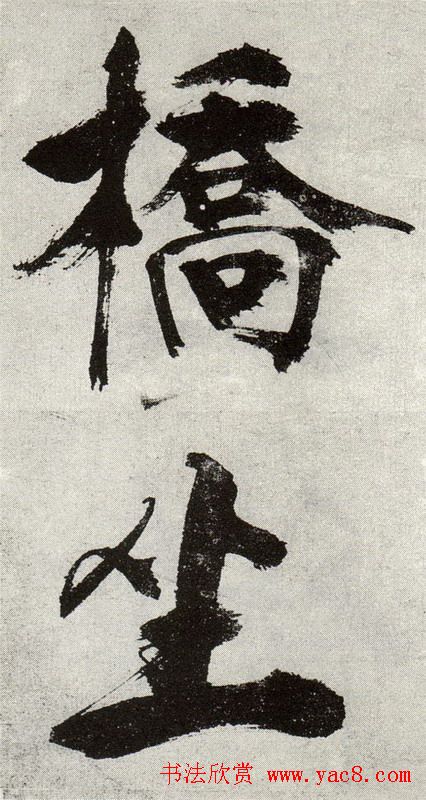 橋
坐
书法欣赏 www.yac8.com